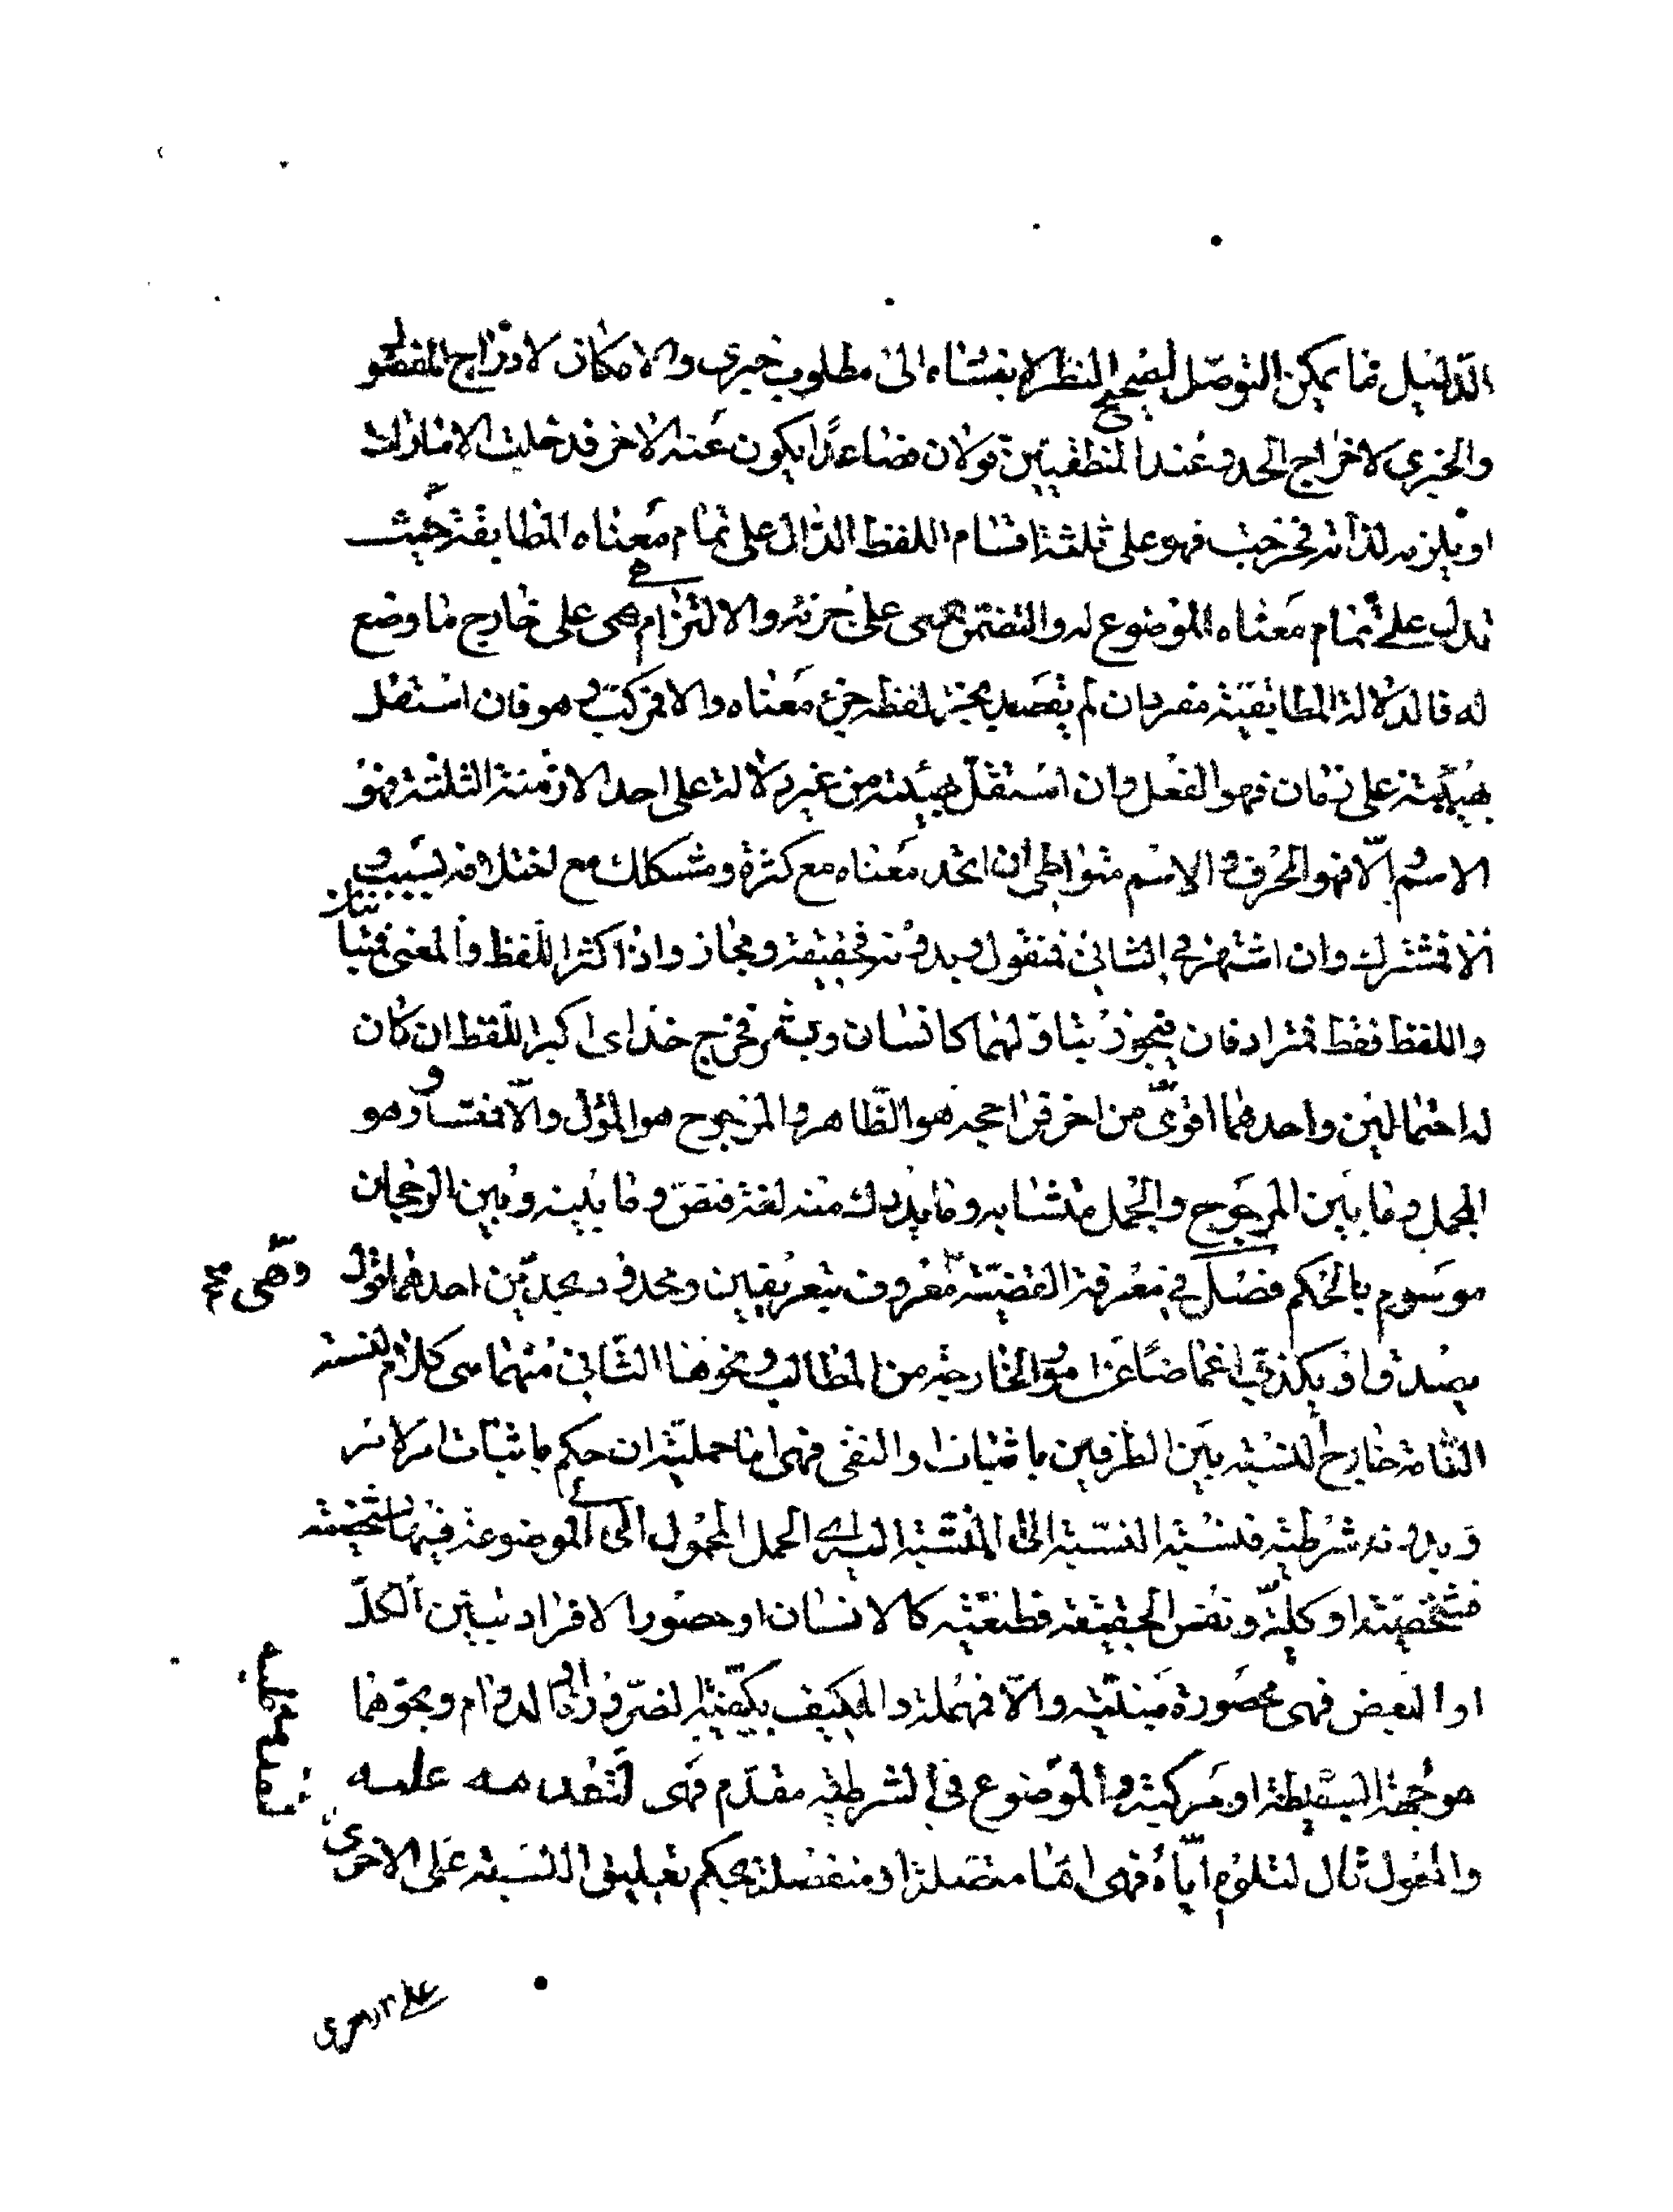 الدليل ما يمكن التوصل بصحيح النظر لا بفساه الى مطلوب خبرى والامكان لادراج المغفول
والخبرى لاخراج الحد وعند المنطقيين قولان فصاعدا يكون عنه الاخر فدخلت الامارات
او يلزمه لذاته فخرجت فهو على ثلثة اقسام اللفظ الدال على تمام معناه المطابقة حيث
تدل على تمام معناه الموضوع له والتضمن هى على جزئه والالتزام هى على خارج ما وضع
له فالدلالة المطابقية مفرد ان لم يقصد بجزء لفظه جزء معناه والا فمركب وهو فان استقل
بهيئة على زمان فهو الفعل وان استقل هيئته من غير دلالة على احد الازمنة الثلثة فهو
الاسم والا فهو الحرف والاسم متواطى ان اتحد معناه مع كثرة ومشكك مع اختلافه بسبب و
الا فمشترك وان اشتهر فى الثانى فمنقول وبدونه فحقيقة ومجاز واذا كثر اللفظ والمعنى فمتباينان
واللفظ فقط فمترادفان فيجوز تناولهما كانسان وبشر فخرج خداى اكبر اللفظ ان كان
له احتمالين واحدهما اقوى من اخر فراجحه هو الظاهر والمرجوح هو المؤل والا فمتساو وهو
المجمل وما بين المرجوح والمجمل متشابه وما يدرك منه لغة فنص وما بينه وبين الرجحان
موسوم بالحكم فصل فى معرفة القضية معروف بتعريفين ومحدود بحدين احدهما قول
وهى
يصدق او يكذب اغماضا عن امور الخارجية من المطالب ونحوها الثانى منهما هى كلام لنسبته
التامة خارج للنسبة بين الطرفين باثبات او النفى فهى اما حملية ان حكم باثبات امر لامر
وبدونه شرطية فنسبة النسبة الى المنتسبة اليه اى الحمل المحمول الى الموضوعة فيها شخصية
فشخصية او كلية ونفس الحقيقة فطبعية كالانسان او حصور الافراد تبيين الكل
او البعض فهى محصورة مبنية والا فمهملة والمكيف بكيفية لضرورة او كالدوام ونحوهما
موجهة البسيطة او مركبة والموضوع فى الشرطية مقدم فهى لتقدمه عليه
والمحمول تال لتلوه اياه فهى اما متصلة او منفصلة بحكم تعليق النسبة على الاخرى